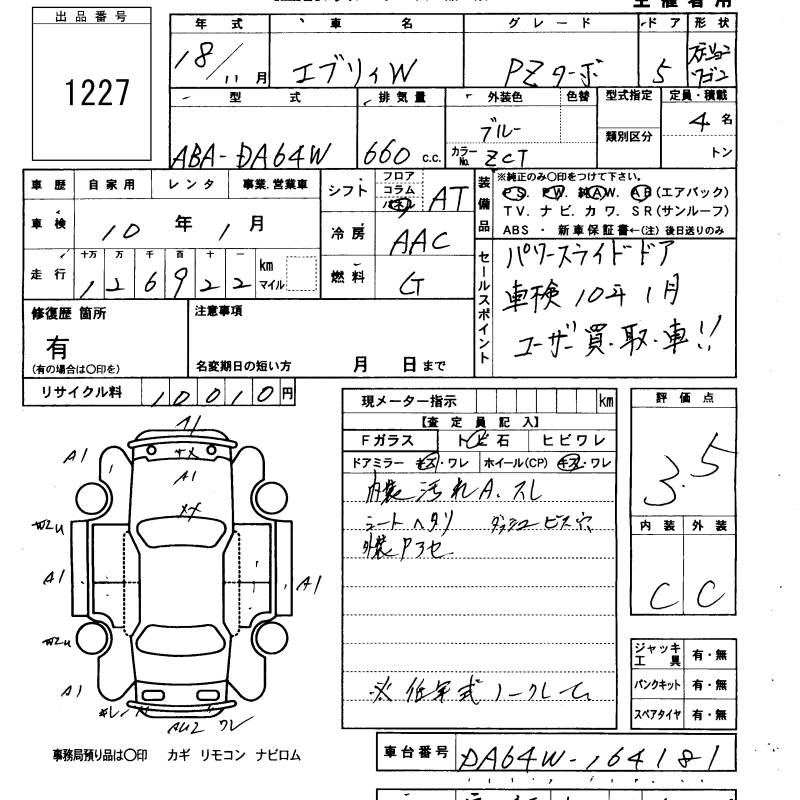 出品番号
1227
年式 車名 グレード ドア 形状
18/11月 エブリィW PZターボ 5 ステーションワゴン
型式 排気量 外装色 色替 型式指定 定員・積載
ABA-DA64W 660 c.c. ブルー 類別区分 4名
カラーNo. ZCT トン
車歴 自家用 レンタ 事業.営業車
車検 10年1月
走行 十万 万 千 百 十 一 km マイル
126922
シフト フロア コラム パネル AT
冷房 AAC
燃料 G
装備品
※純正のみ〇印をつけて下さい。
PS. PW. 純AW. AB(エアバック)
TV. ナビ. カワ. SR(サンルーフ)
ABS ・ 新車保証書←(注) 後日送りのみ
セールスポイント
パワースライドドア
車検10年1月
ユーザー買取車!!
修復歴 箇所
有
(有の場合は〇印を)
注意事項
名変期日の短い方 月 日まで
リサイクル料 10010円
現メーター指示 km
【査定員記入】
Fガラス トビ石 ヒビワレ
ドアミラー キズ・ワレ ホイール(CP) キズ・ワレ
内装汚れA.スレ
シートヘタリ ダッシュビス穴
外装P3セ
※低年式ノークレーム
評価点
3.5
内装 外装
C C
A1
サメ
A1
メメ
W2u
A1
A1
W2u
A1
キレ
AU2 ワレ
ジャッキ工具 有・無
パンクキット 有・無
スペアタイヤ 有・無
事務局預り品は〇印 カギ リモコン ナビロム
車台番号 DA64W-164181